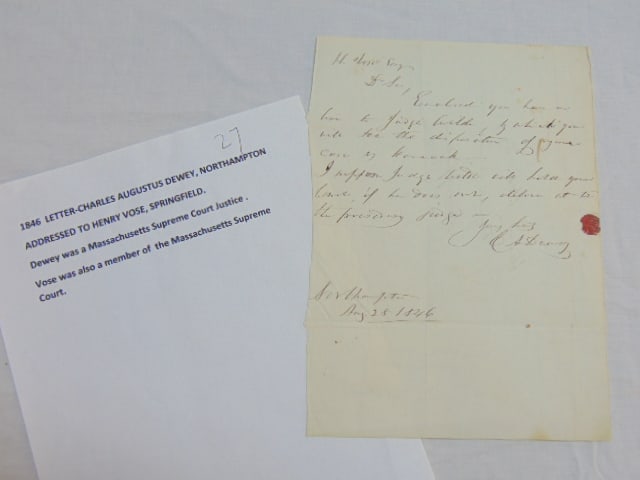 27
1846 LETTER-CHARLES AUGUSTUS DEWEY, NORTHAMPTON
ADDRESSED TO HENRY VOSE, SPRINGFIELD.
Dewey was a Massachusetts Supreme Court Justice .
Vose was also a member of the Massachusetts Supreme
Court.
H. Vose Esqr
Dr Sir,
Enclosed you have a
to Judge by which you
will see the disposition of your
case
I suppose Judge will hold your
if he does not, deliver it to
the presiding Judge
Yours truly
C A Dewey
Northampton
Aug 28 1846